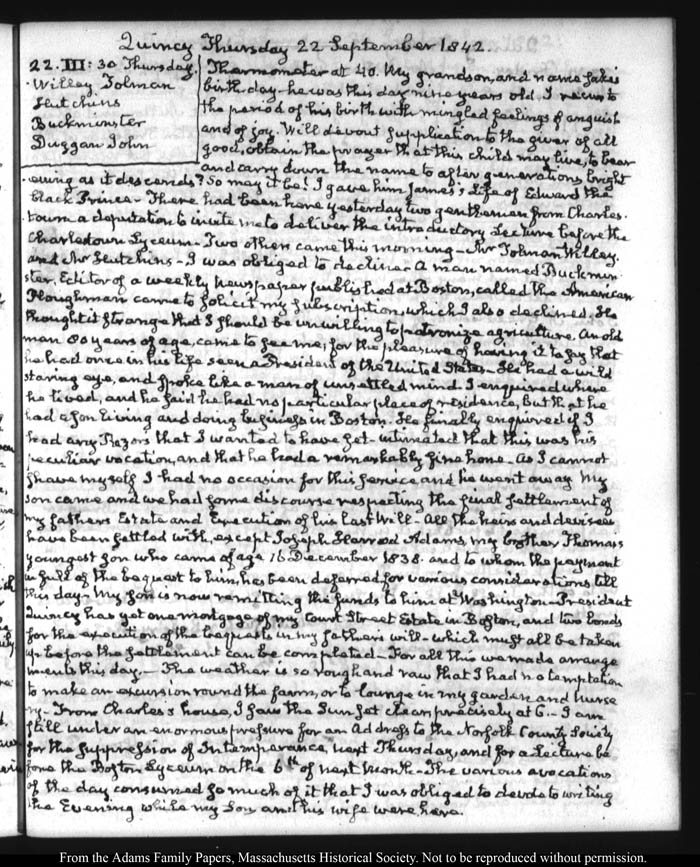 Quincy Thursday 22 September 1842.
22. III: 30 Thursday
Willey Tolman
Hutchins
Buckminster
Duggan John
Thermometer at 40. My grandson, and name sake's
birth-day—he was this day nine years old I recur to
the period of his birth with mingled feelings of anguish
and of joy. Will devout supplication to the giver of all
good, obtain the prayer that this child may live, to bear
and carry down the name to after generations, bright
ening as it descends? So may it be! I gave him James's Life of Edward the
black Prince—There had been here yesterday two gentlemen from Charles.
town a deputation to invite me to deliver the introductory Lecture before the
Charlestown Lyceum—Two others came this morning—Mr Tolman Willey.
and Mr Hutchins—I was obliged to decline. A man named Buckmin
ster, Editor of a weekly newspaper published at Boston, called the American
Ploughman came to solicit my subscription, which I also declined. He
thought it strange that I should be unwilling to patronize agriculture. An old
man 80 years of age, came to see me, for the pleasure of having it to say that
he had once in his life seen a President of the United States—He had a wild
staring eye, and spoke like a man of unsettled mind. I enquired where
he lived, and he said he had no particular place of residence, but that he
had a son living and doing business in Boston. He finally enquired if I
had any Razors that I wanted to have set—intimated that this was his
peculiar vocation, and that he had a remarkably fine hone—As I cannot
shave myself I had no occasion for this service and he went away. My
son came and we had some discourse respecting the final settlement of
my fathers Estate and Execution of his last Will—All the heirs and devisees
have been settled with, except Joseph Harrod Adams, my brother Thomas's
youngest son who came of age 16 December 1838. and to whom the payment
in full of the bequest to him, has been deferred for various considerations till
this day—My son is now remitting the funds to him at Washington—President
Quincy has yet one mortgage of my Court Street Estate in Boston, and two bonds
for the execution of the bequests in my father's will—which must all be taken
up before the settlement can be completed—For all this we made arrange
ments this day.—The weather is so rough and raw that I had no temptation
to make an excursion round the farm, or to lounge in my garden and nurse
ry—From Charles's house, I saw the Sun set clear precisely at 6.—I am
still under an enormous pressure for an Address to the Norfolk County Society
for the suppression of Intemperance, next Thursday, and for a Lecture be
fore the Boston Lyceum on the 6th of next month—The various avocations
of the day consumed so much of it that I was obliged to devote to writing
the Evening while my Son and his wife were here.
From the Adams Family Papers, Massachusetts Historical Society. Not to be reproduced without permission.